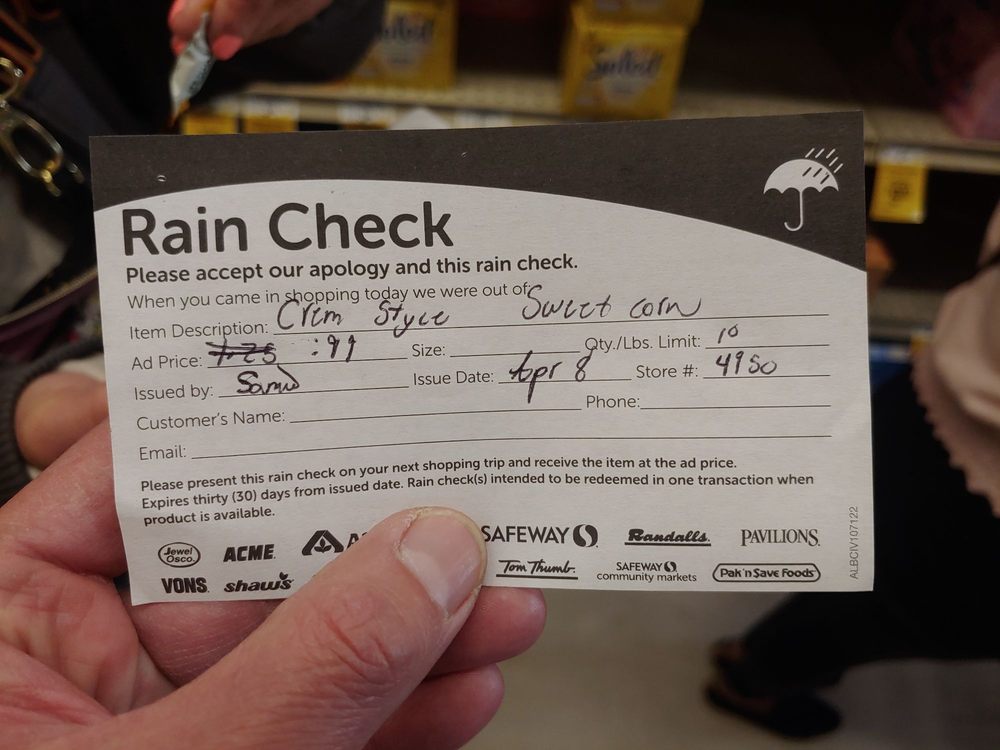 Rain Check
Please accept our apology and this rain check.
When you came in shopping today we were out of
Item Description: Crem Style Sweet corn
Ad Price: 1.25 .99 Size: Qty./Lbs. Limit: 10
Issued by: Issue Date: Apr 8 Store #: 4950
Customer's Name: Phone:
Email:
Please present this rain check on your next shopping trip and receive the item at the ad price.
Expires thirty (30) days from issued date. Rain check(s) intended to be redeemed in one transaction when
product is available.
Jewel Osco. ACME SAFEWAY Randalls. PAVILIONS.
VONS shaw's Tom Thumb SAFEWAY community markets Pak'n Save Foods
ALBCIV107122